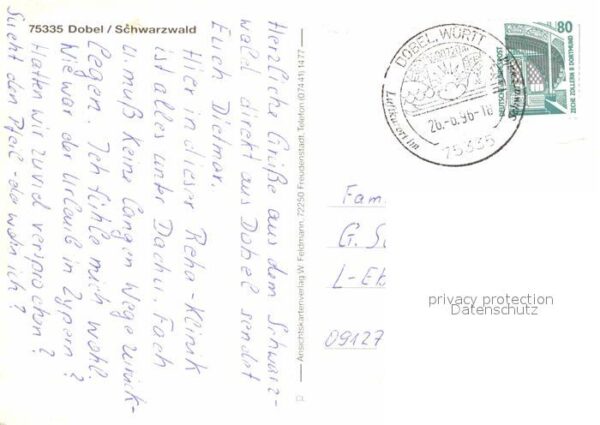 75335 Dobel / Schwarzwald
Herzliche Grüße aus dem Schwarz-
wald direkt aus Dobel sendet
Euch Dietmar.
Hier in dieser Reha-Klinik
ist alles unter Dach u. Fach
u. muß keine langen Wege zurück-
legen. Ich fühle mich wohl.
Wie war der Urlaub in Zypern?
Hatten wir zuviel versprochen?
Sieht den Pfeil - da wohn ich?
Ansichtskartenverlag W. Feldmann, 72250 Freudenstadt, Telefon (07441) 1477
DOBEL, WÜRTT
26.-6.96-18
75335
80
DEUTSCHE BUNDESPOST
ZECHE ZOLLERN II DORTMUND
Fam
G. S
L-E
09127
privacy protection
Datenschutz